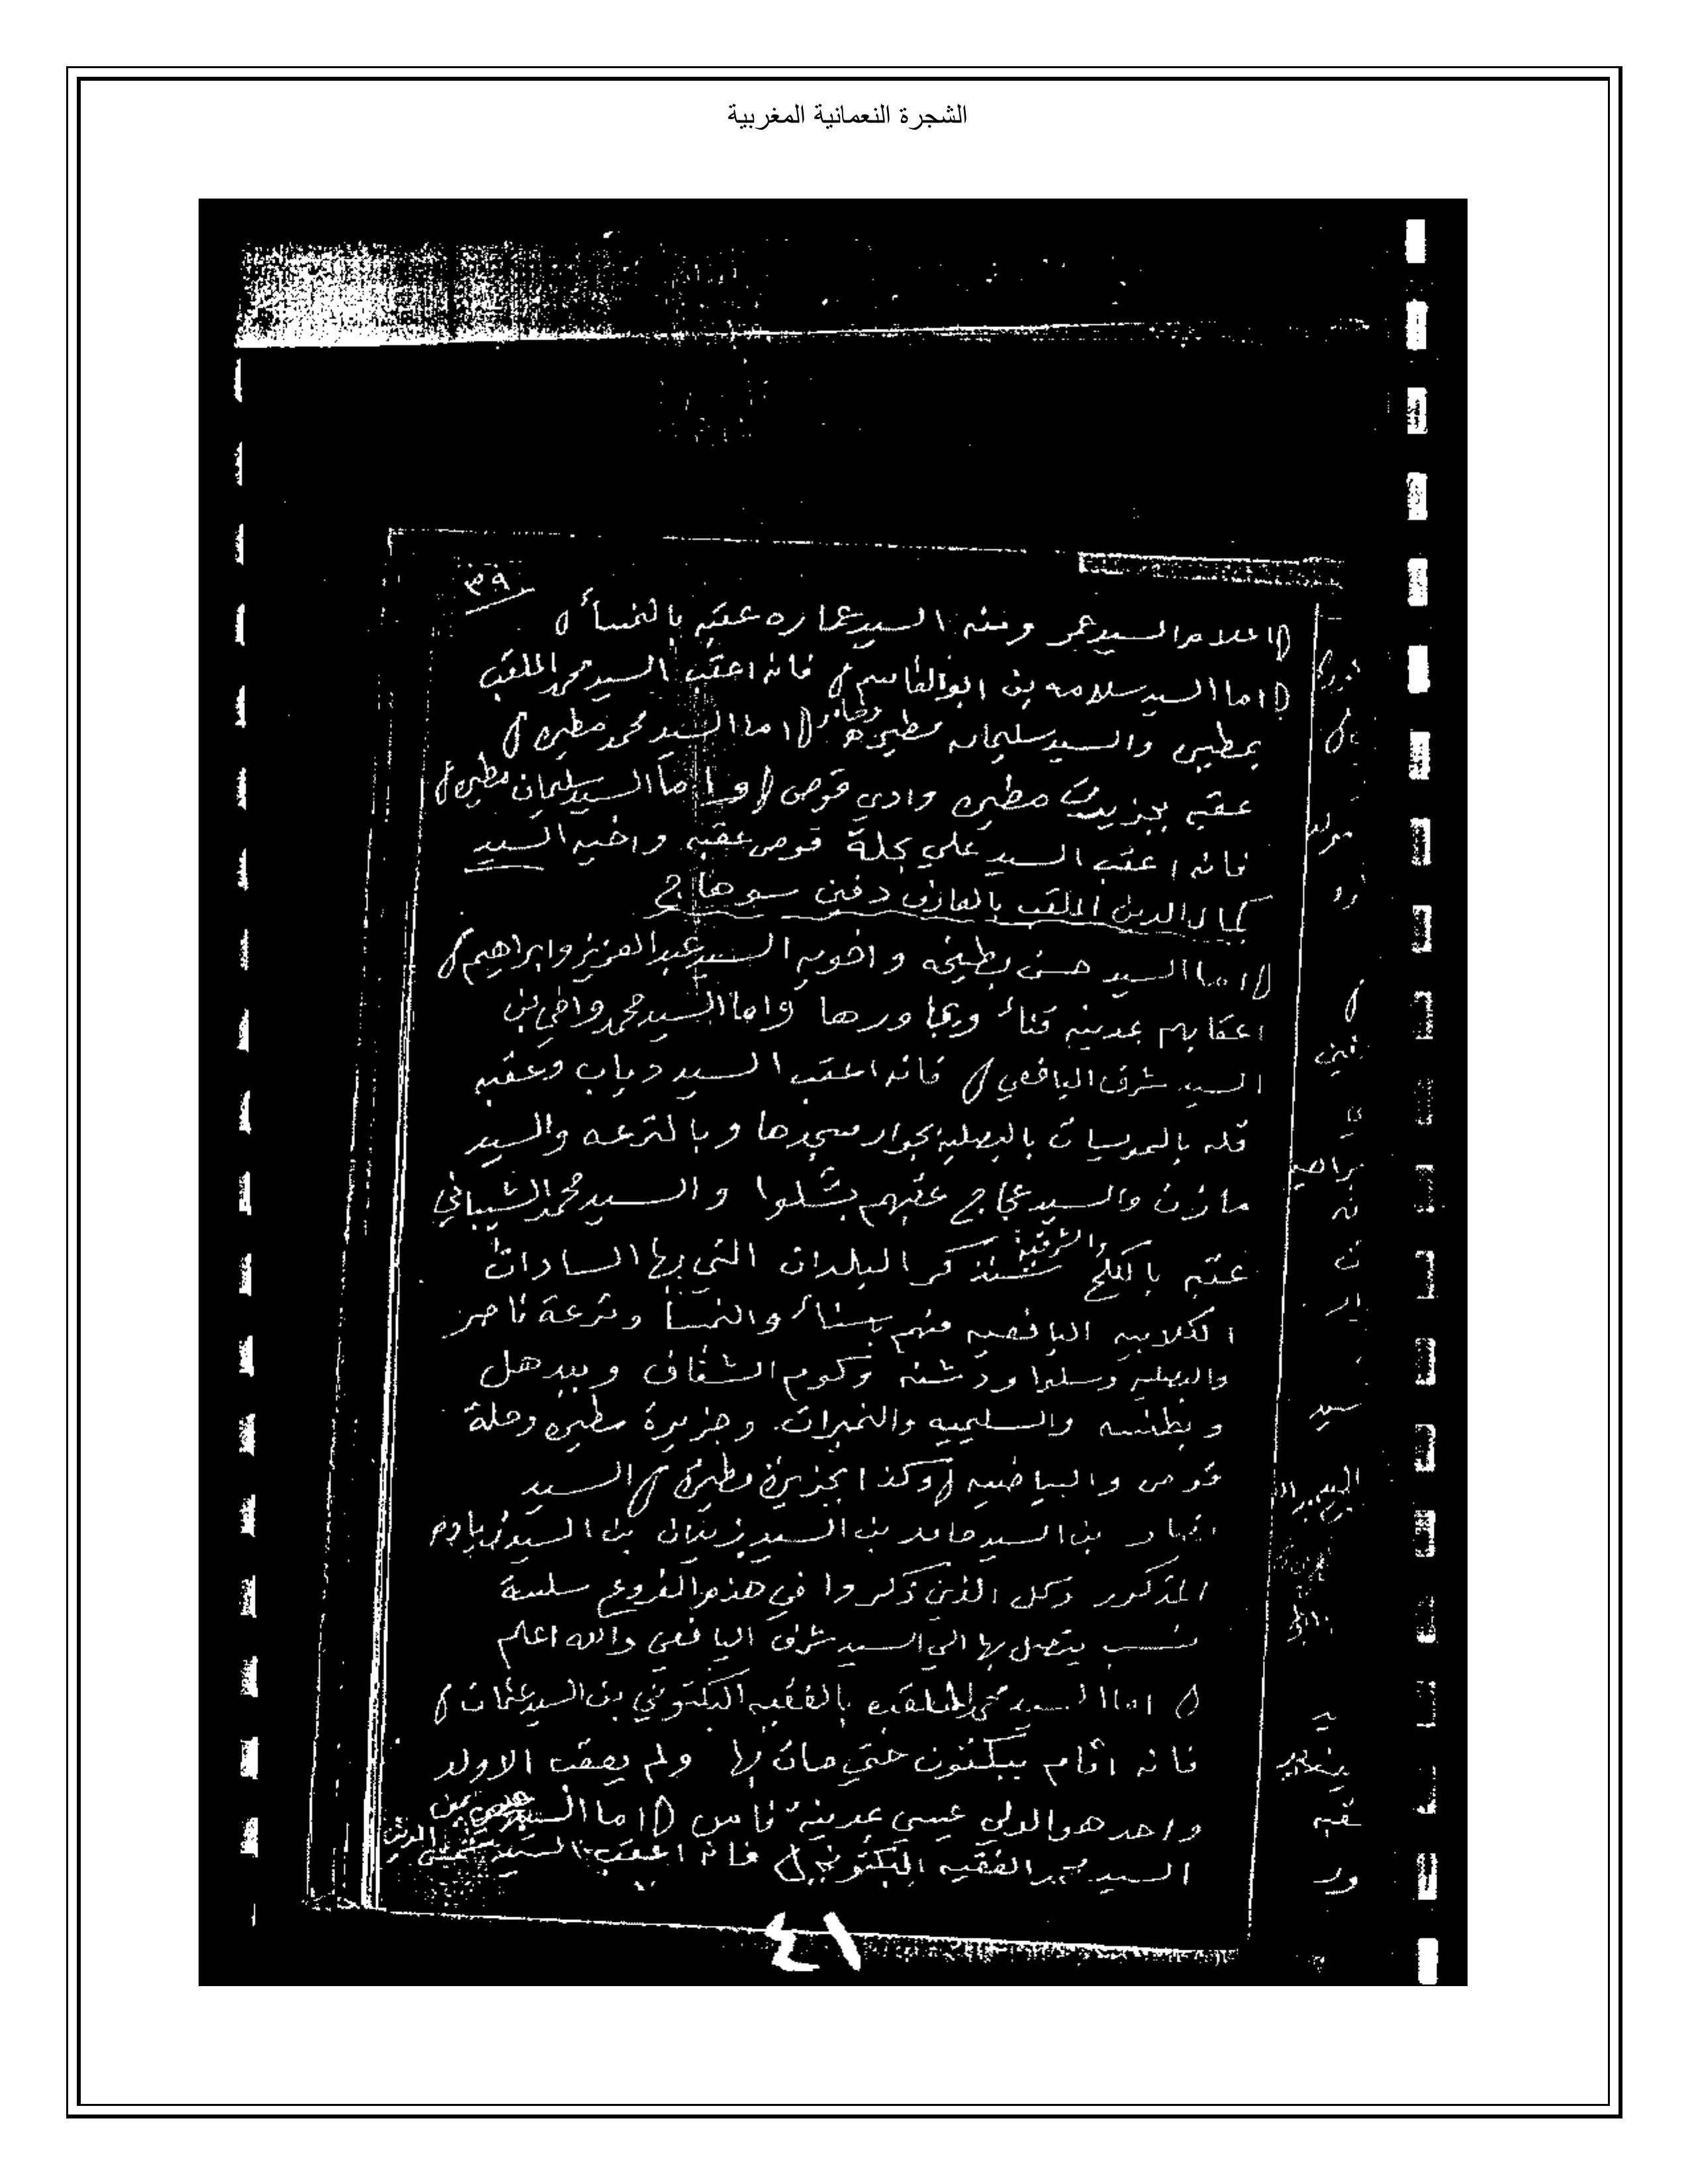 الشجرة النعمانية المغربية
٣٩
السيد عمر ومنه السيد عماره عقبه بالنمسا
اما السيد سلامه بن ابو القاسم فانه اعقب السيد محمد الملقب
والسيد سليمان اما السيد محمد مطيره
عقبه بجزيرة مطيره وادي قوص واما السيد سليمان مطيره
فانه اعقب السيد علي بحلة قوص عقبه واخيه السيد
كمال الدين الملقب بالعازف دفين سوهاج
اما السيد حسن بطيخه واخويه السيد عبد العزيز وابراهيم
اعقابهم بمدينة قناء ويجاورها واما السيد محمد واخي بن
السيد شرف اليافعي فانه اعقب السيد دياب وعقبه
قله بالبصليه بجوار مسجدها وبالترعه والسيد
مازن والسيد حجاج عقبهم بشلوا والسيد محمد الشيباني
عقبه بالكلح والشرقيه سنذكر البلدان التي بها السادات
الكلابيه اليافعيه منهم والنمسا وترعة ناصر
والبصليه وسلوا ودشنه وكوم الشقاف
والسليميه والنميرات وجزيرة مطيره وحلة
قوص والبياضيه وكذا بجزيرة مطيره السيد
بن السيد حامد بن السيد زيتان بن السيد
المذكور وكل الذين ذكروا في هذه الفروع سلسة
نسب يتصل بها الي السيد شرف اليافعي والله اعلم
اما السيد محمد الملقب بالفقيه البكتوني بن السيد عثمان
فانه اقام ببكتون حتي مات بها ولم يعقب الا ولد
واحد هو الولي عيسي بمدينة فاس اما السيد عيسي بن
السيد محمد الفقيه البكتوني فانه اعقب السيد
٤١